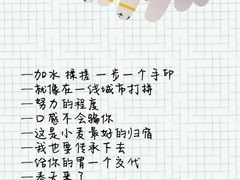 —加水 揉搓 一步一个手印
—就像在一线城市打拼
—努力的程度
—口感不会骗你
—这是小麦最好的归宿
—我也要传承下去
—给你的胃一个交代